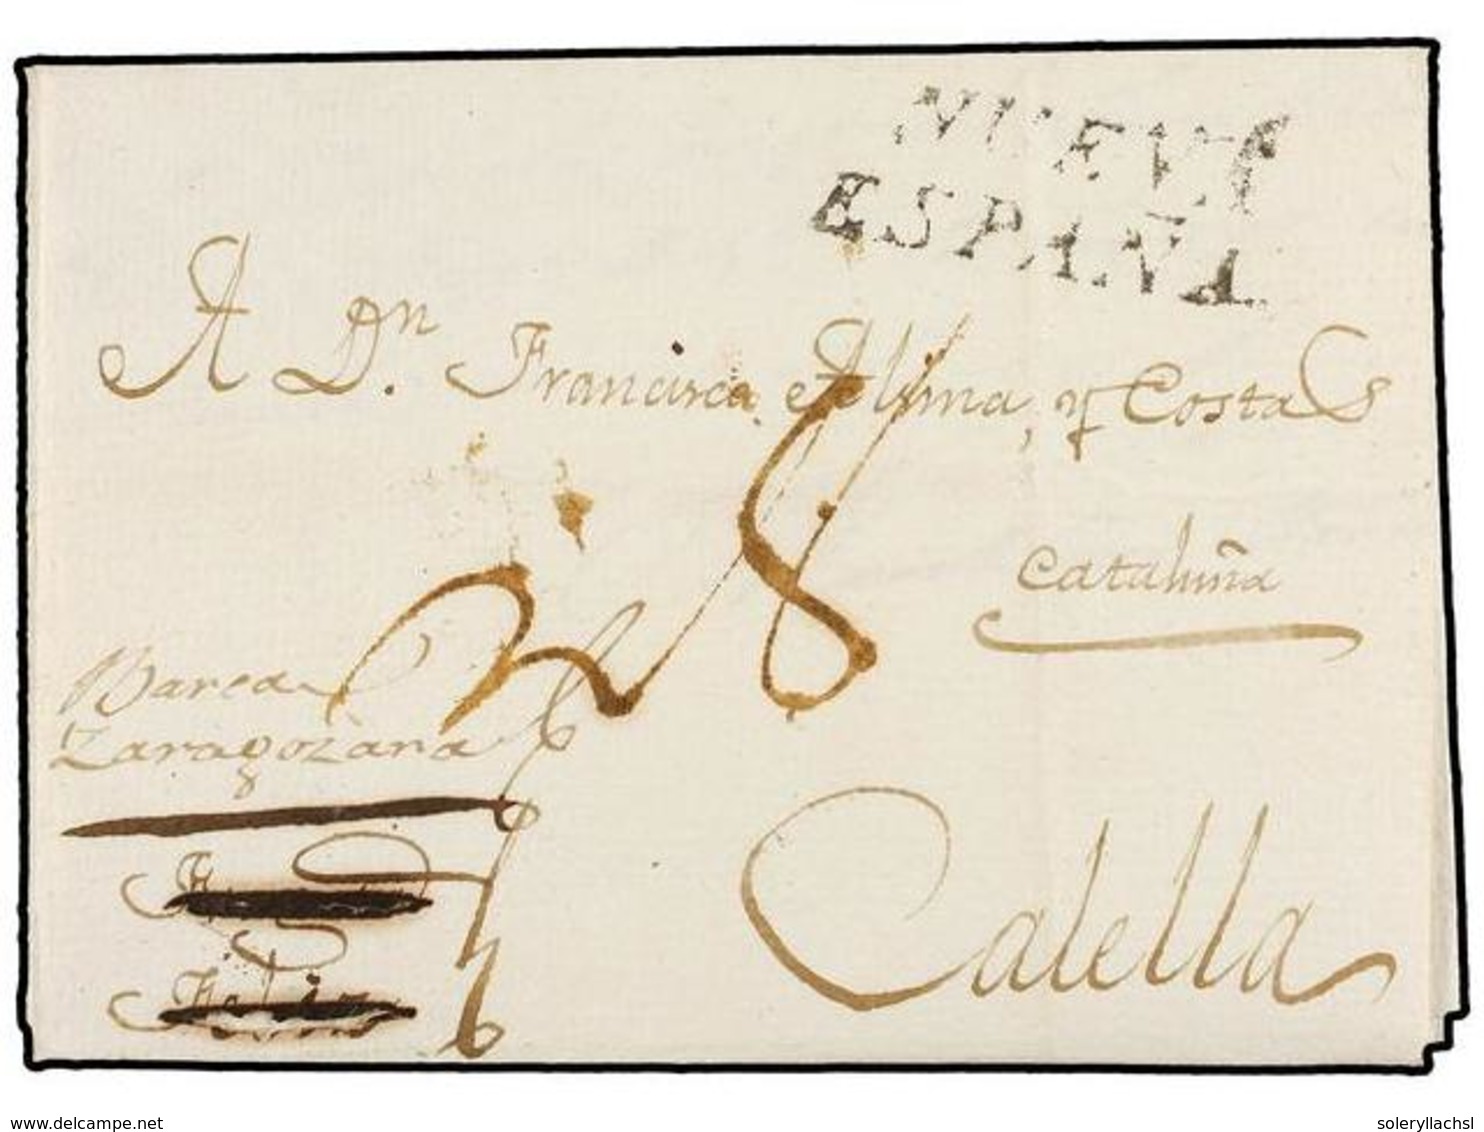 NUEVA
ESPAÑA
A Dn. Francisca Alsina, y Costa
Cataluña
Barca
Zaragozana
Calella
28
delcampe.net
soleryllachsl